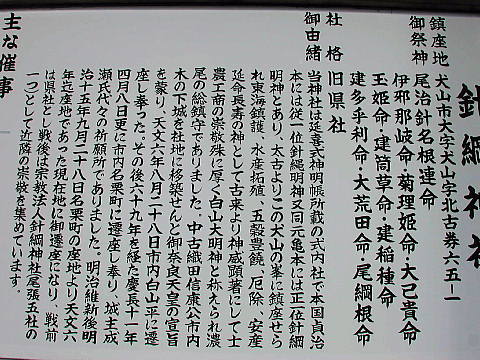 針綱神社
鎮座地 犬山市大字犬山字北古券六五ー一
御祭神 尾治針名根連命
伊邪那岐命・菊理姫命・大己貴命
玉姫命・建筒草命・建稲種命
建多乎利命・大荒田命・尾綱根命
社格 旧県社
御由緒
当神社は延喜式神明帳所載の式内社で本国貞治
本には従一位針綱明神又同元亀本には正一位針綱
明神とあり、太古よりこの犬山の峯に鎮座せら
れ東海鎮護、水産拓殖、五穀豊饒、厄除、安産
延命長寿の神として古来より神威顕著にして士
農工商の崇敬殊に厚く白山大明神と称えられ濃
尾の総鎮守でありました。中古織田信康公市内
木の下城を社地に移築せんと御奈良天皇の宣旨
を蒙り、天文六年八月二十八日市内白山平に遷
座し奉った。その後六十九年を経た慶長十一年
四月八日更に市内名栗町に遷座し奉り、城主成
瀬氏代々の祈願所でありました。明治維新後明
治十五年九月二十八日名栗町の座地より天文六
年迄座地であった現在地に御遷座になり、戦前
は県社とし戦後は宗教法人針綱神社尾張五社の
一つとして近隣の崇敬を集めています。
主な催事